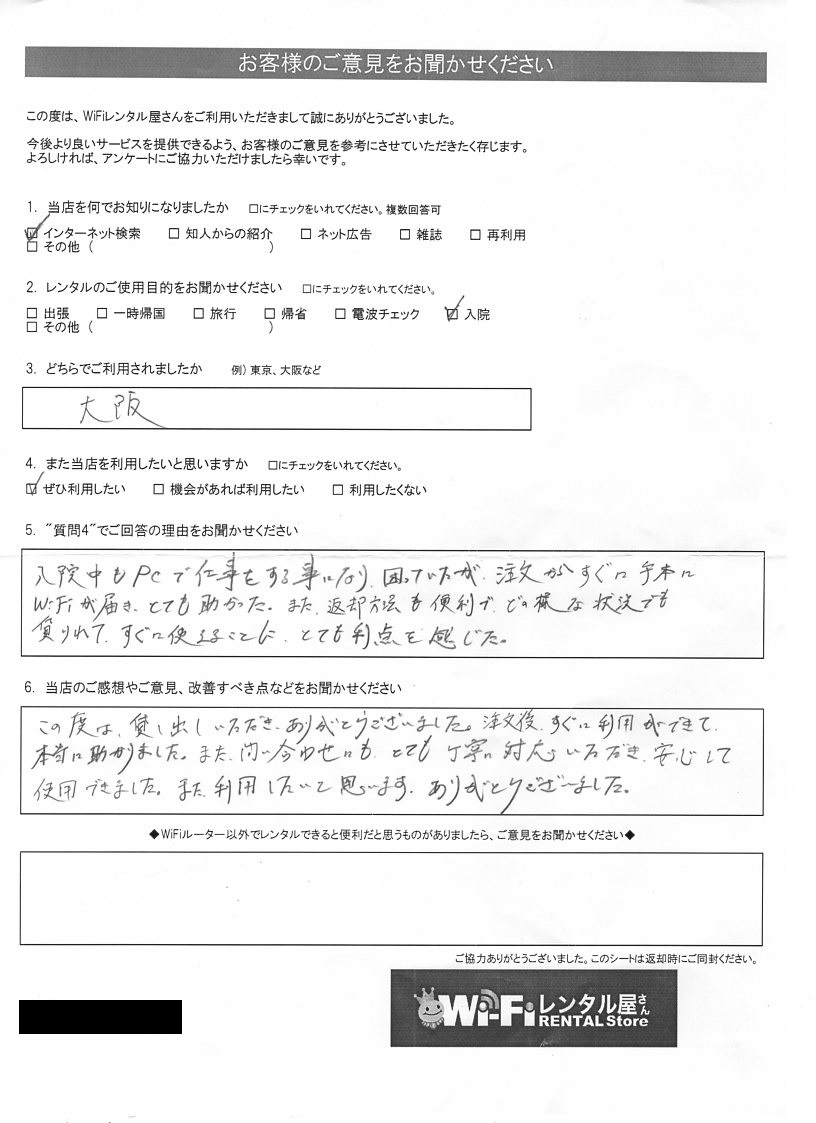 お客様のご意見をお聞かせください
この度は、WiFiレンタル屋さんをご利用いただきまして誠にありがとうございました。
今後より良いサービスを提供できるよう、お客様のご意見を参考にさせていただきたく存じます。
よろしければ、アンケートにご協力いただけましたら幸いです。
1. 当店を何でお知りになりましたか □にチェックをいれてください。複数回答可
☑ インターネット検索 □ 知人からの紹介 □ ネット広告 □ 雑誌 □ 再利用
□ その他 ( )
2. レンタルのご使用目的をお聞かせください □にチェックをいれてください。
□ 出張 □ 一時帰国 □ 旅行 □ 帰省 □ 電波チェック ☑ 入院
□ その他 ( )
3. どちらでご利用されましたか 例) 東京、大阪など
大阪
4. また当店を利用したいと思いますか □にチェックをいれてください。
☑ ぜひ利用したい □ 機会があれば利用したい □ 利用したくない
5. "質問4"でご回答の理由をお聞かせください
入院中もPCで仕事をする事になり、困っていたが、注文からすぐに手元に
Wi-Fiが届き、とても助かった。また、返却方法も便利で、どの様な状況でも
借りれて、すぐに使えることに、とても利点を感じた。
6. 当店のご感想やご意見、改善すべき点などをお聞かせください
この度は、貸し出しいただき、ありがとうございました。注文後、すぐに利用ができて、
本当に助かりました。また、問い合わせにも、とても丁寧に対応いただき、安心して
使用できました。また、利用したいと思います。ありがとうございました。
◆WiFiルーター以外でレンタルできると便利だと思うものがありましたら、ご意見をお聞かせください◆
ご協力ありがとうございました。このシートは返却時にご同封ください。
Wi-Fiレンタル屋さん
RENTAL Store